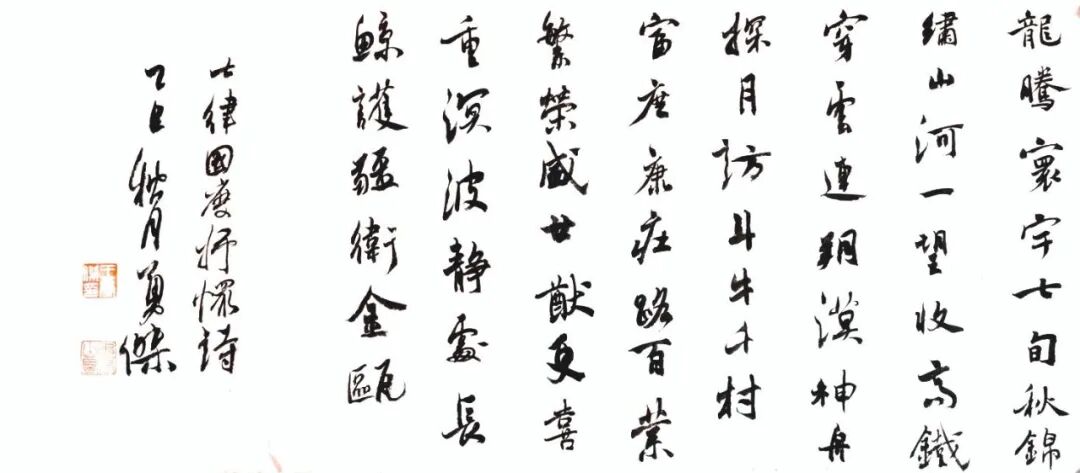 龍騰寰宇七旬秋錦
繡山河一望收高鐵
穿雲連朔漠神舟
探月訪斗牛千村
富庶康庄路百業
繁榮盛世猷更喜
重溟波静處長
鯨護疆衛金甌
七律國慶抒懷詩
乙巳秋月勇傑